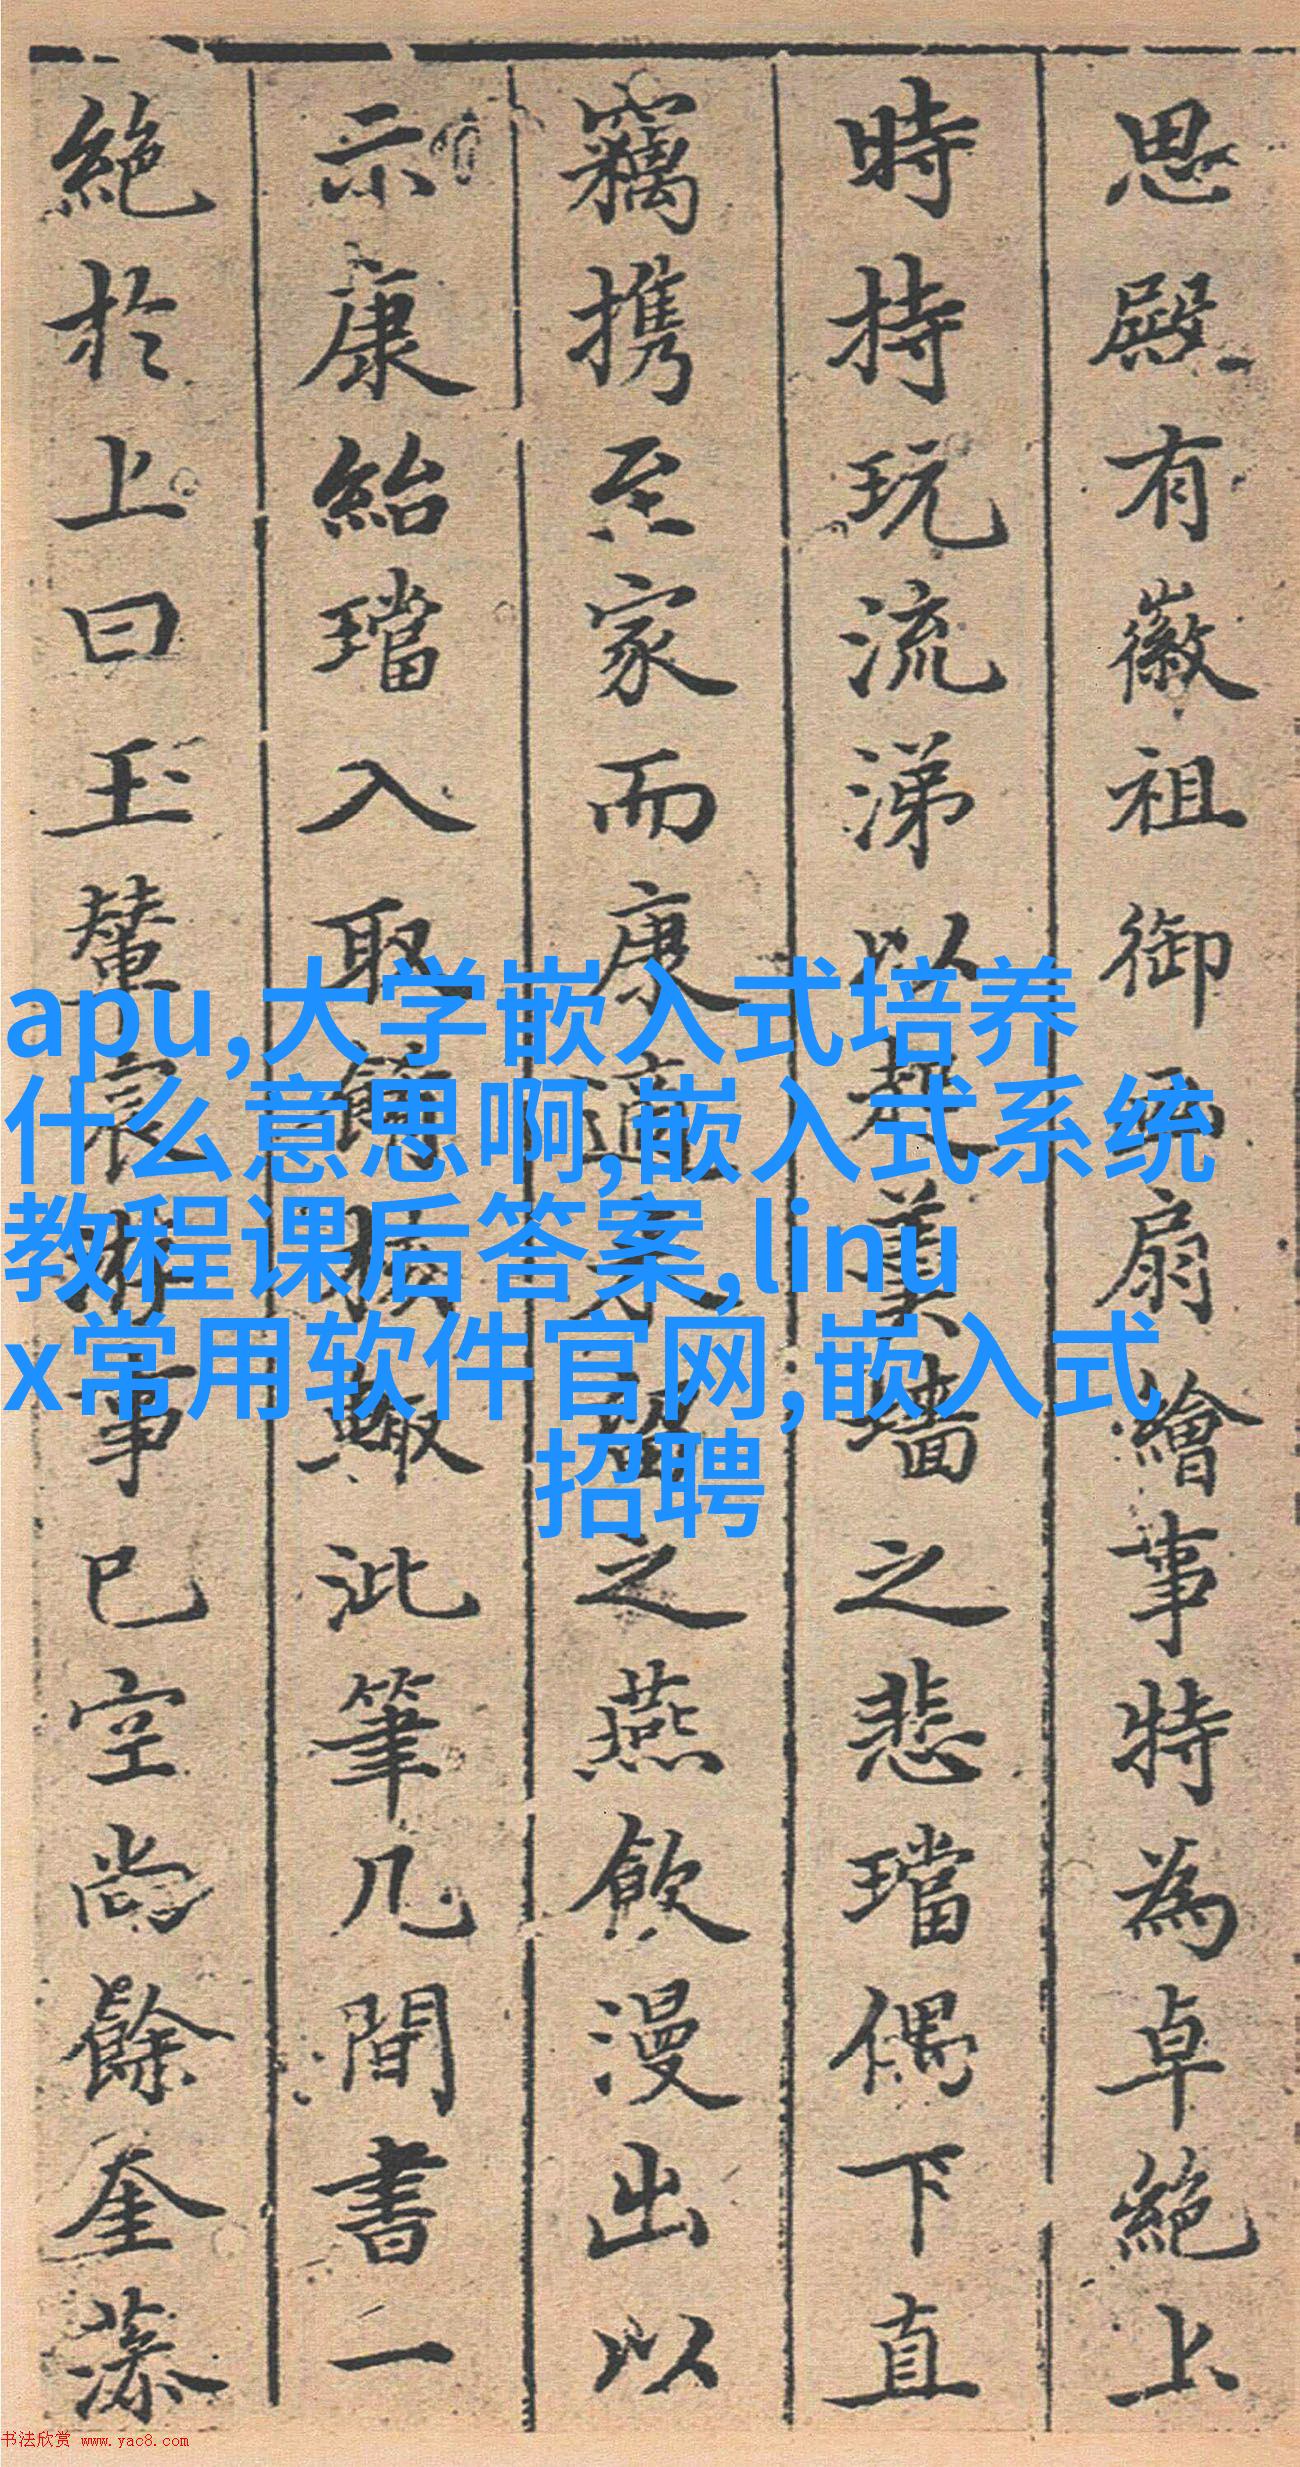 思殿有徽祖御畫扇繪事特為卓絶上
時持玩流涕以起羹墻之悲璫偶下直
竊携至家而康適來留之燕飲漫出以
示康紿璫入取殽核輙泚筆几間書一
絶於上曰玉輦宸遊事已空尚餘奎藻
apu,大学嵌入式培养
什么意思啊,嵌入式系统
教程课后答案,linu
x常用软件官网,嵌入式
招聘
书法欣赏 www.yac8.com